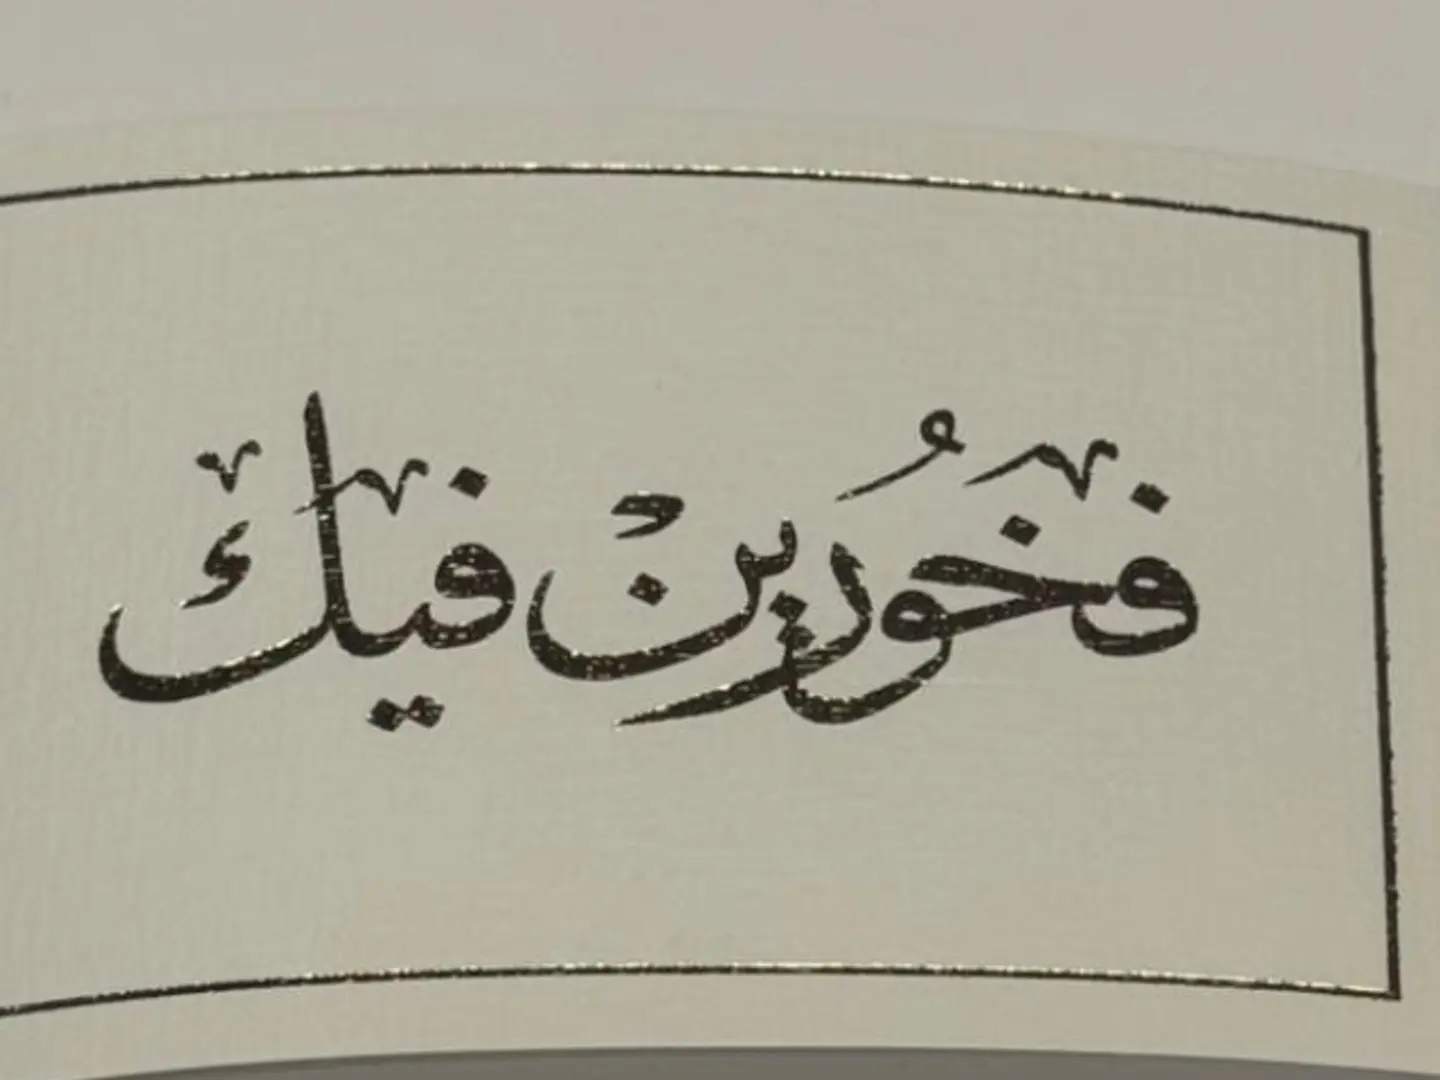 فخُورينْ فيك